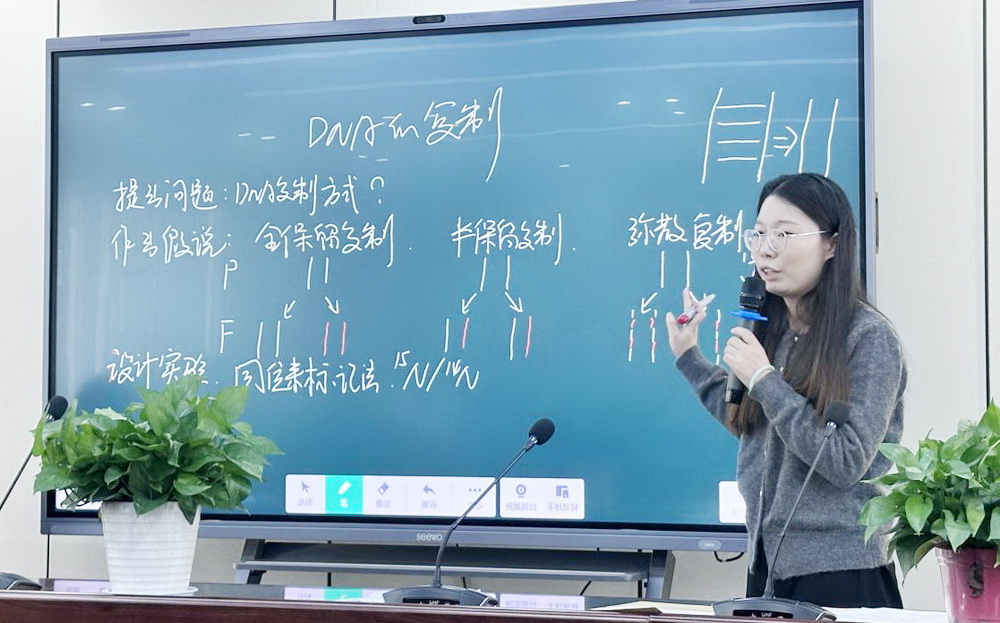 DNA的复制
提出问题：DNA复制方式？
作出假说：全保留复制． 半保留复制． 弥散复制
P
F
设计实验． 同位素标记法．¹⁵N/¹⁴N
选择 笔 橡皮 撤消 视频展台 手机投屏
seewo